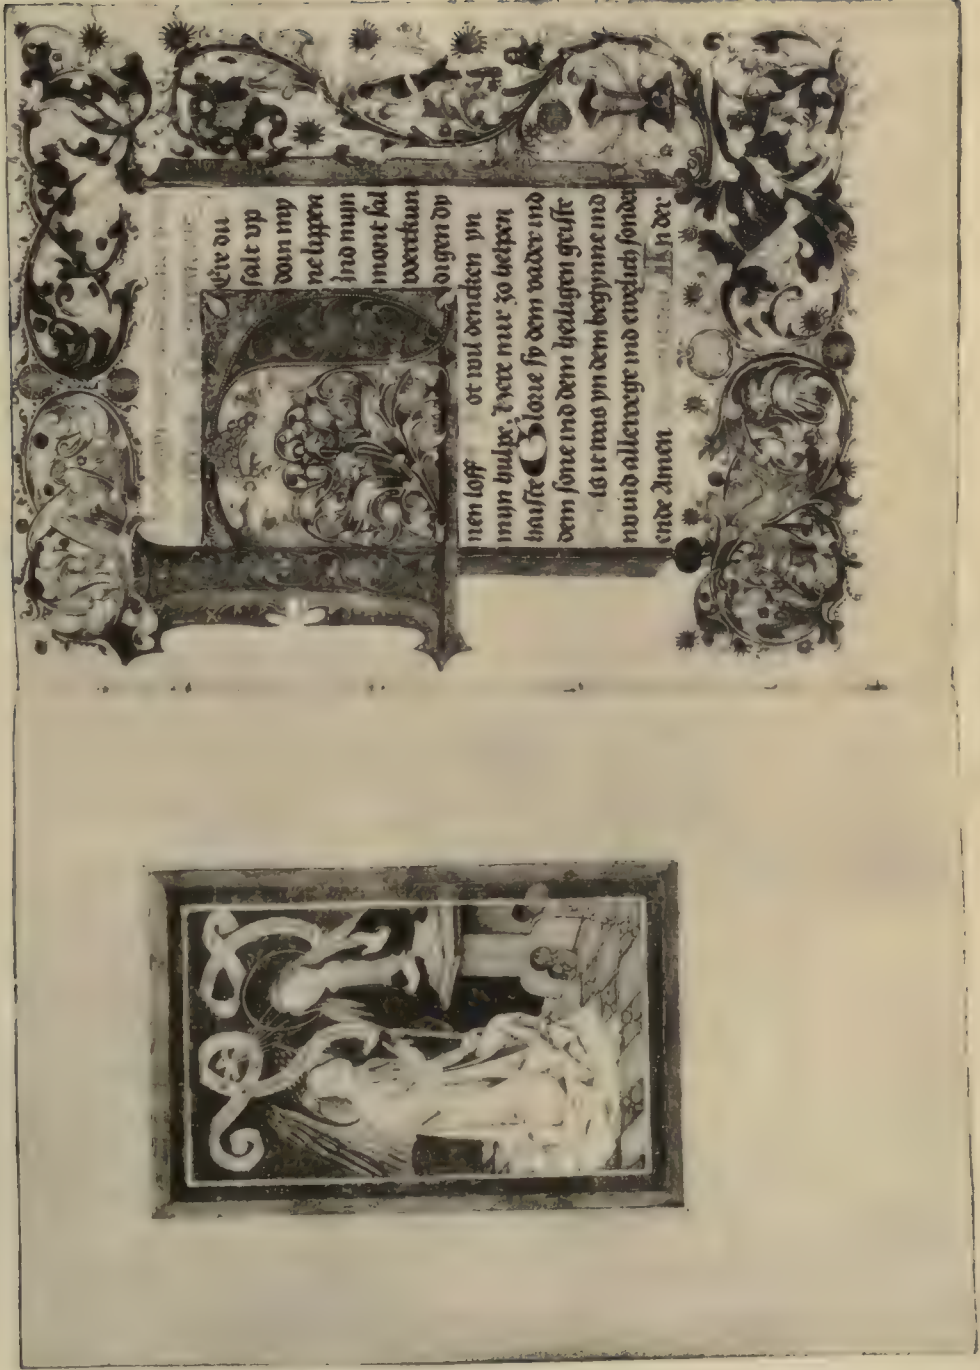 Ere du
salt vp
doin my
ne lippen
Jnd mijn
mont sal
verkun
digen dy
nen loff ot wil dencken yn
mijn hulpe, here mir zo helpen
haiste Glorie sy dem vader ind
dem sone ind dem heiligen geiste
is it was yn dem begynne ind
nv ind allerwege ind ewelich sonder
ende Amen der